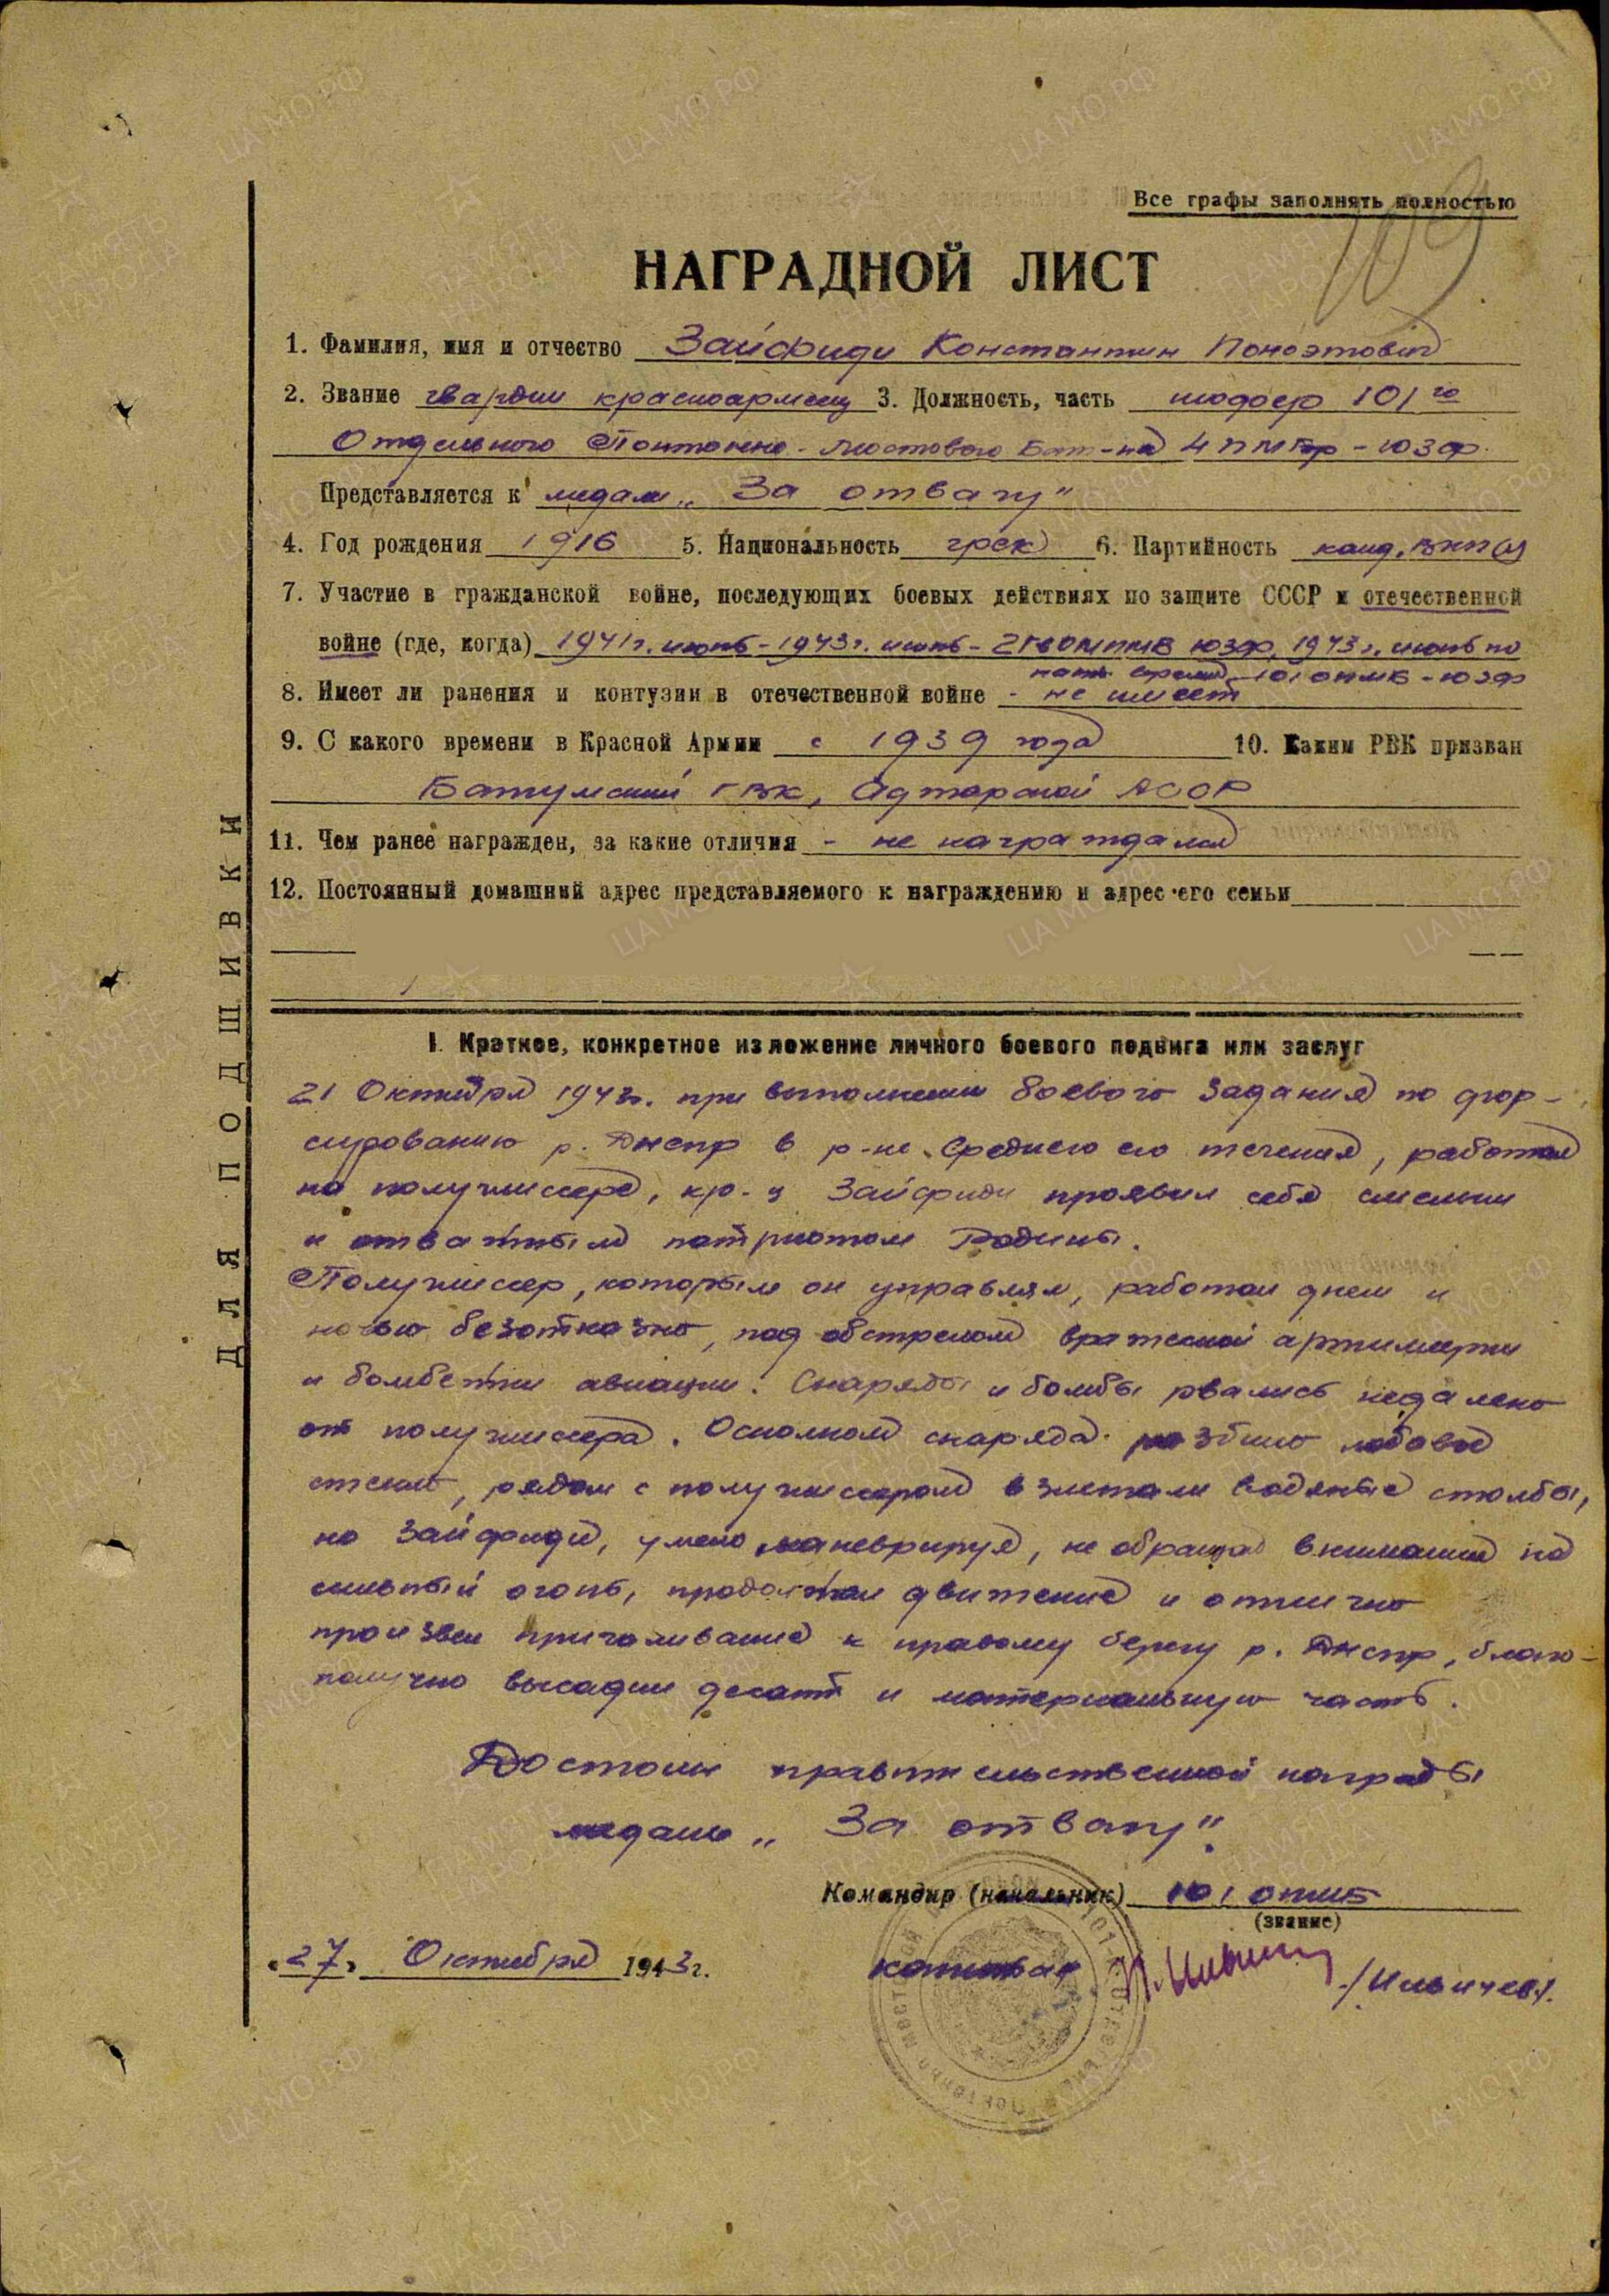 Все графы заполнять полностью
109
НАГРАДНОЙ ЛИСТ
1. Фамилия, имя и отчество Зайфиди Константин
2. Звание гвардии красноармеец 3. Должность, часть шофер 101го
Отдельного Понтонно-Мостового Бат-на 4 ПМБр - ЮЗФ.
Представляется к медали „За отвагу"
4. Год рождения 1916 5. Национальность грек 6. Партийность канд. ВКП(б)
7. Участие в гражданской войне, последующих боевых действиях по защите СССР и отечественной
войне (где, когда) 1941г. июнь - 1943г. июнь - ЮЗФ, 1943г. июнь по
наст. время - 101 ОПМБ - ЮЗФ
8. Имеет ли ранения и контузии в отечественной войне - не имеет
9. С какого времени в Красной Армии с 1939 года 10. Каким РВК призван
Батумский ГВК, Аджарской АССР
11. Чем ранее награжден, за какие отличия - не награждался
12. Постоянный домашний адрес представляемого к награждению и адрес его семьи
ДЛЯ ПОДШИВКИ
I. Краткое, конкретное изложение личного боевого подвига или заслуг
21 Октября 1943г. при выполнении боевого задания по фор-
сированию р. Днепр в р-не среднего его течения, работая
на полуглиссере, кр-ц Зайфиди проявил себя смелым
и отважным патриотом Родины.
Полуглиссер, которым он управлял, работал днем и
ночью безотказно, под обстрелом вражеской артиллерии
и бомбежки авиации. Снаряды и бомбы рвались недалеко
от полуглиссера. Осколком снаряда разбило лобовое
стекло, рядом с полуглиссером взлетали водяные столбы,
но Зайфиди, умело маневрируя, не обращая внимания на
сильный огонь, продолжал движение и отлично
произвел причаливание к правому берегу р. Днепр, благо-
получно высадил десант и материальную часть.
Достоин правительственной награды
медали „За отвагу".
Командир (начальник) 101 ОПМБ
(звание)
„27" Октября 1943г.
капитан /Ильичев/.